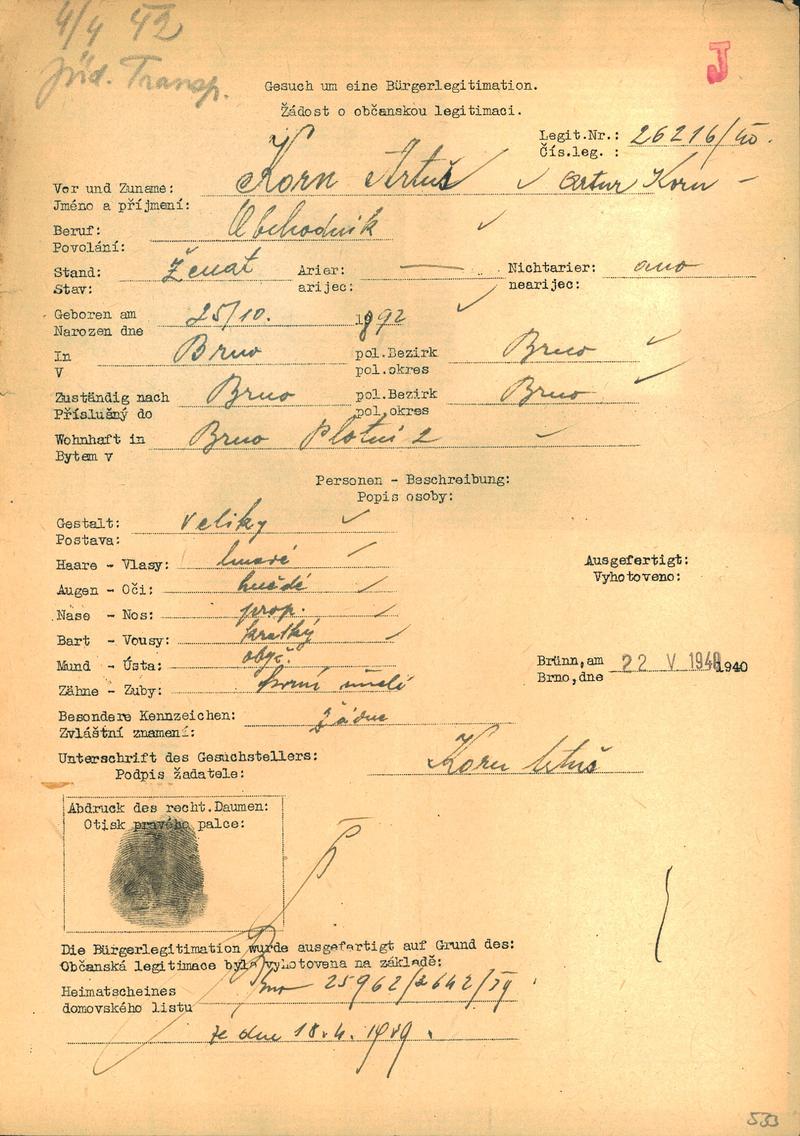 4/4 42
Jüd. Transp.
J
Gesuch um eine Bürgerlegitimation.
Žádost o občanskou legitimaci.
Legit.Nr.: 26216/40.
Čís.leg. :
Vor und Zuname: Korn Artuš Artur Korn
Jméno a příjmení:
Beruf: Obchodník
Povolání:
Stand: Ženat Arier: — Nichtarier: ano
Stav: arijec: nearijec:
Geboren am 25/10. 1892
Narozen dne
In Brno pol.Bezirk Brno
V pol.okres
Zuständig nach Brno pol.Bezirk Brno
Příslušný do pol.okres
Wohnhaft in Brno Plotní 2
Bytem v
Personen - Beschreibung:
Popis osoby:
Gestalt: veliký
Postava:
Haare - Vlasy: tmavé
Augen - Oči: hnědé
Nase - Nos: prop.
Bart - Vousy: kratký
Mund - Ústa: obyč.
Zähne - Zuby: horní umělé
Ausgefertigt:
Vyhotoveno:
Brünn,am 22 V 1940 1940
Brno,dne
Besondere Kennzeichen: žádné
Zvláštní znamení:
Unterschrift des Gesuchstellers: Korn Artuš
Podpis žadatele:
Abdruck des recht.Daumen:
Otisk pravého palce:
Die Bürgerlegitimation wurde ausgefertigt auf Grund des:
Občanská legitimace byla vyhotovena na základě:
Heimatscheines Brno 25962/2642/IV
domovského listu
ze dne 18.4. 1919.
533